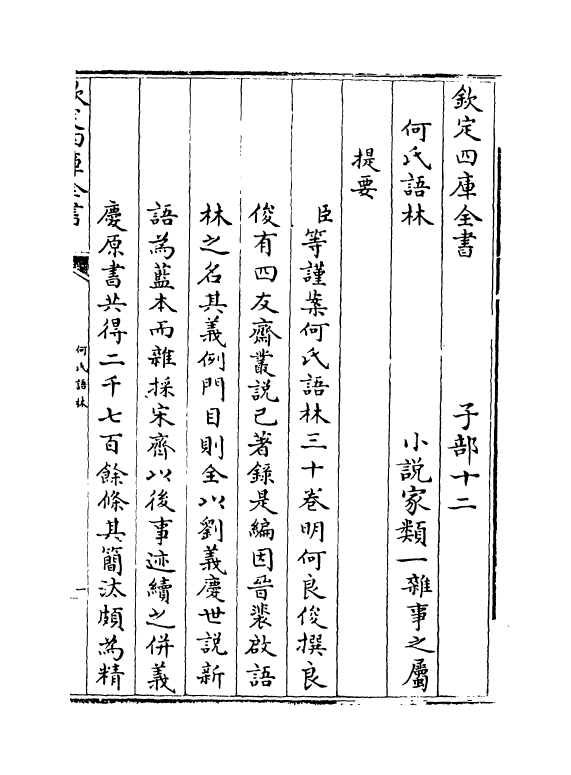 欽定四庫全書 子部十二
何氏語林 小説家類一雜事之屬
提要
臣等謹案何氏語林三十卷明何良俊撰良
俊有四友齋叢説已著錄是編因晉裴啟語
林之名其義例門目則全以劉義慶世説新
語為藍本而雜採宋齊以後事迹續之併義
慶原書共得二千七百餘條其簡汰頗為精
欽定四庫全書
何氏語林
一